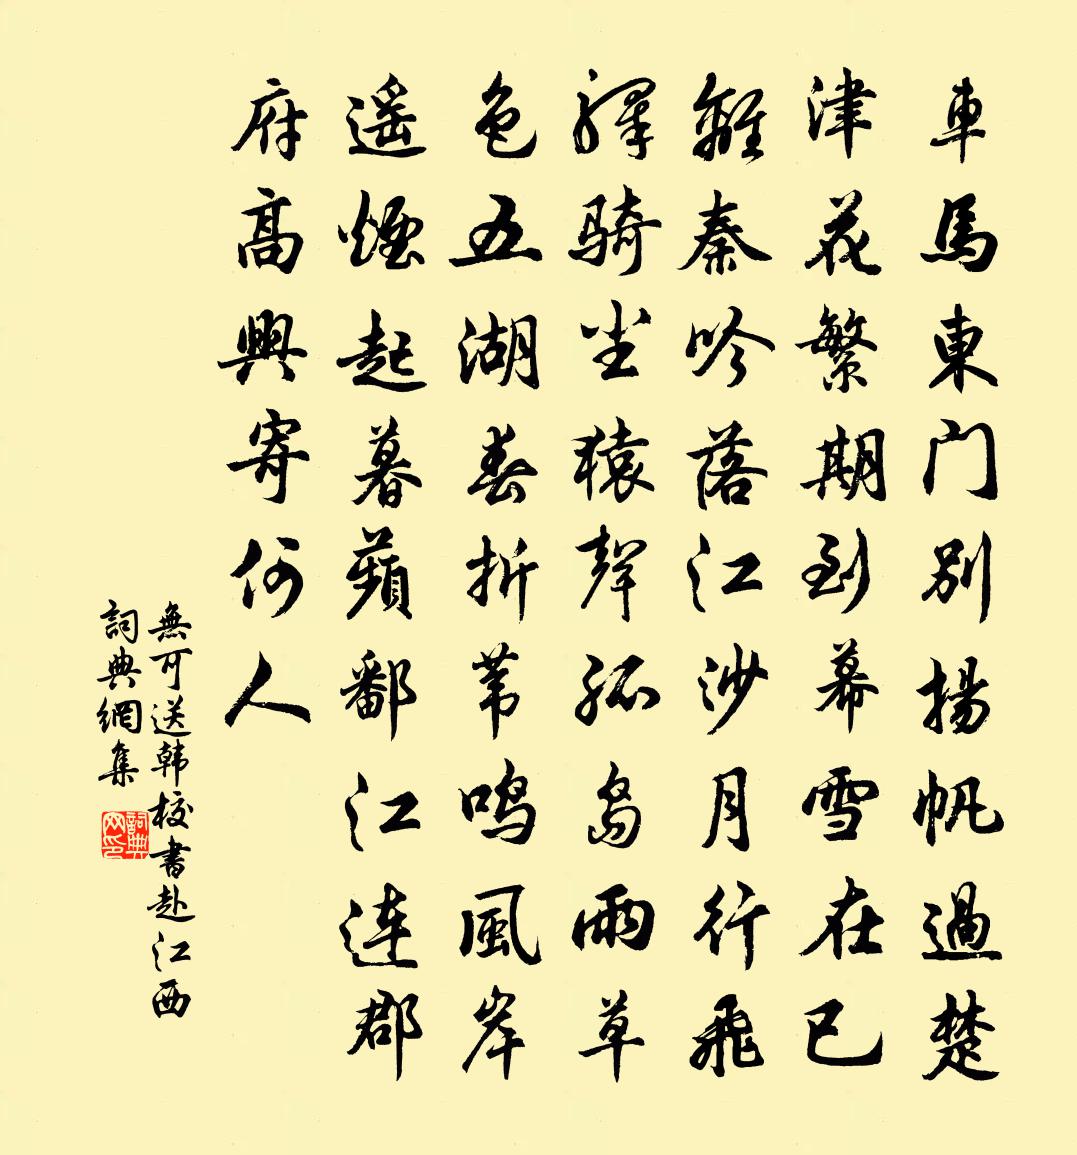 車馬東门別揚帆過楚
津花繁期到幕雪在已
離秦吟落江沙月行飛
驛騎尘猿聲孤島雨草
色五湖春折苇鸣風岸
遥煙起暮蘋鄱江連郡
府高興寄何人
無可送韩校書赴江西
詞典網集
詞典网印